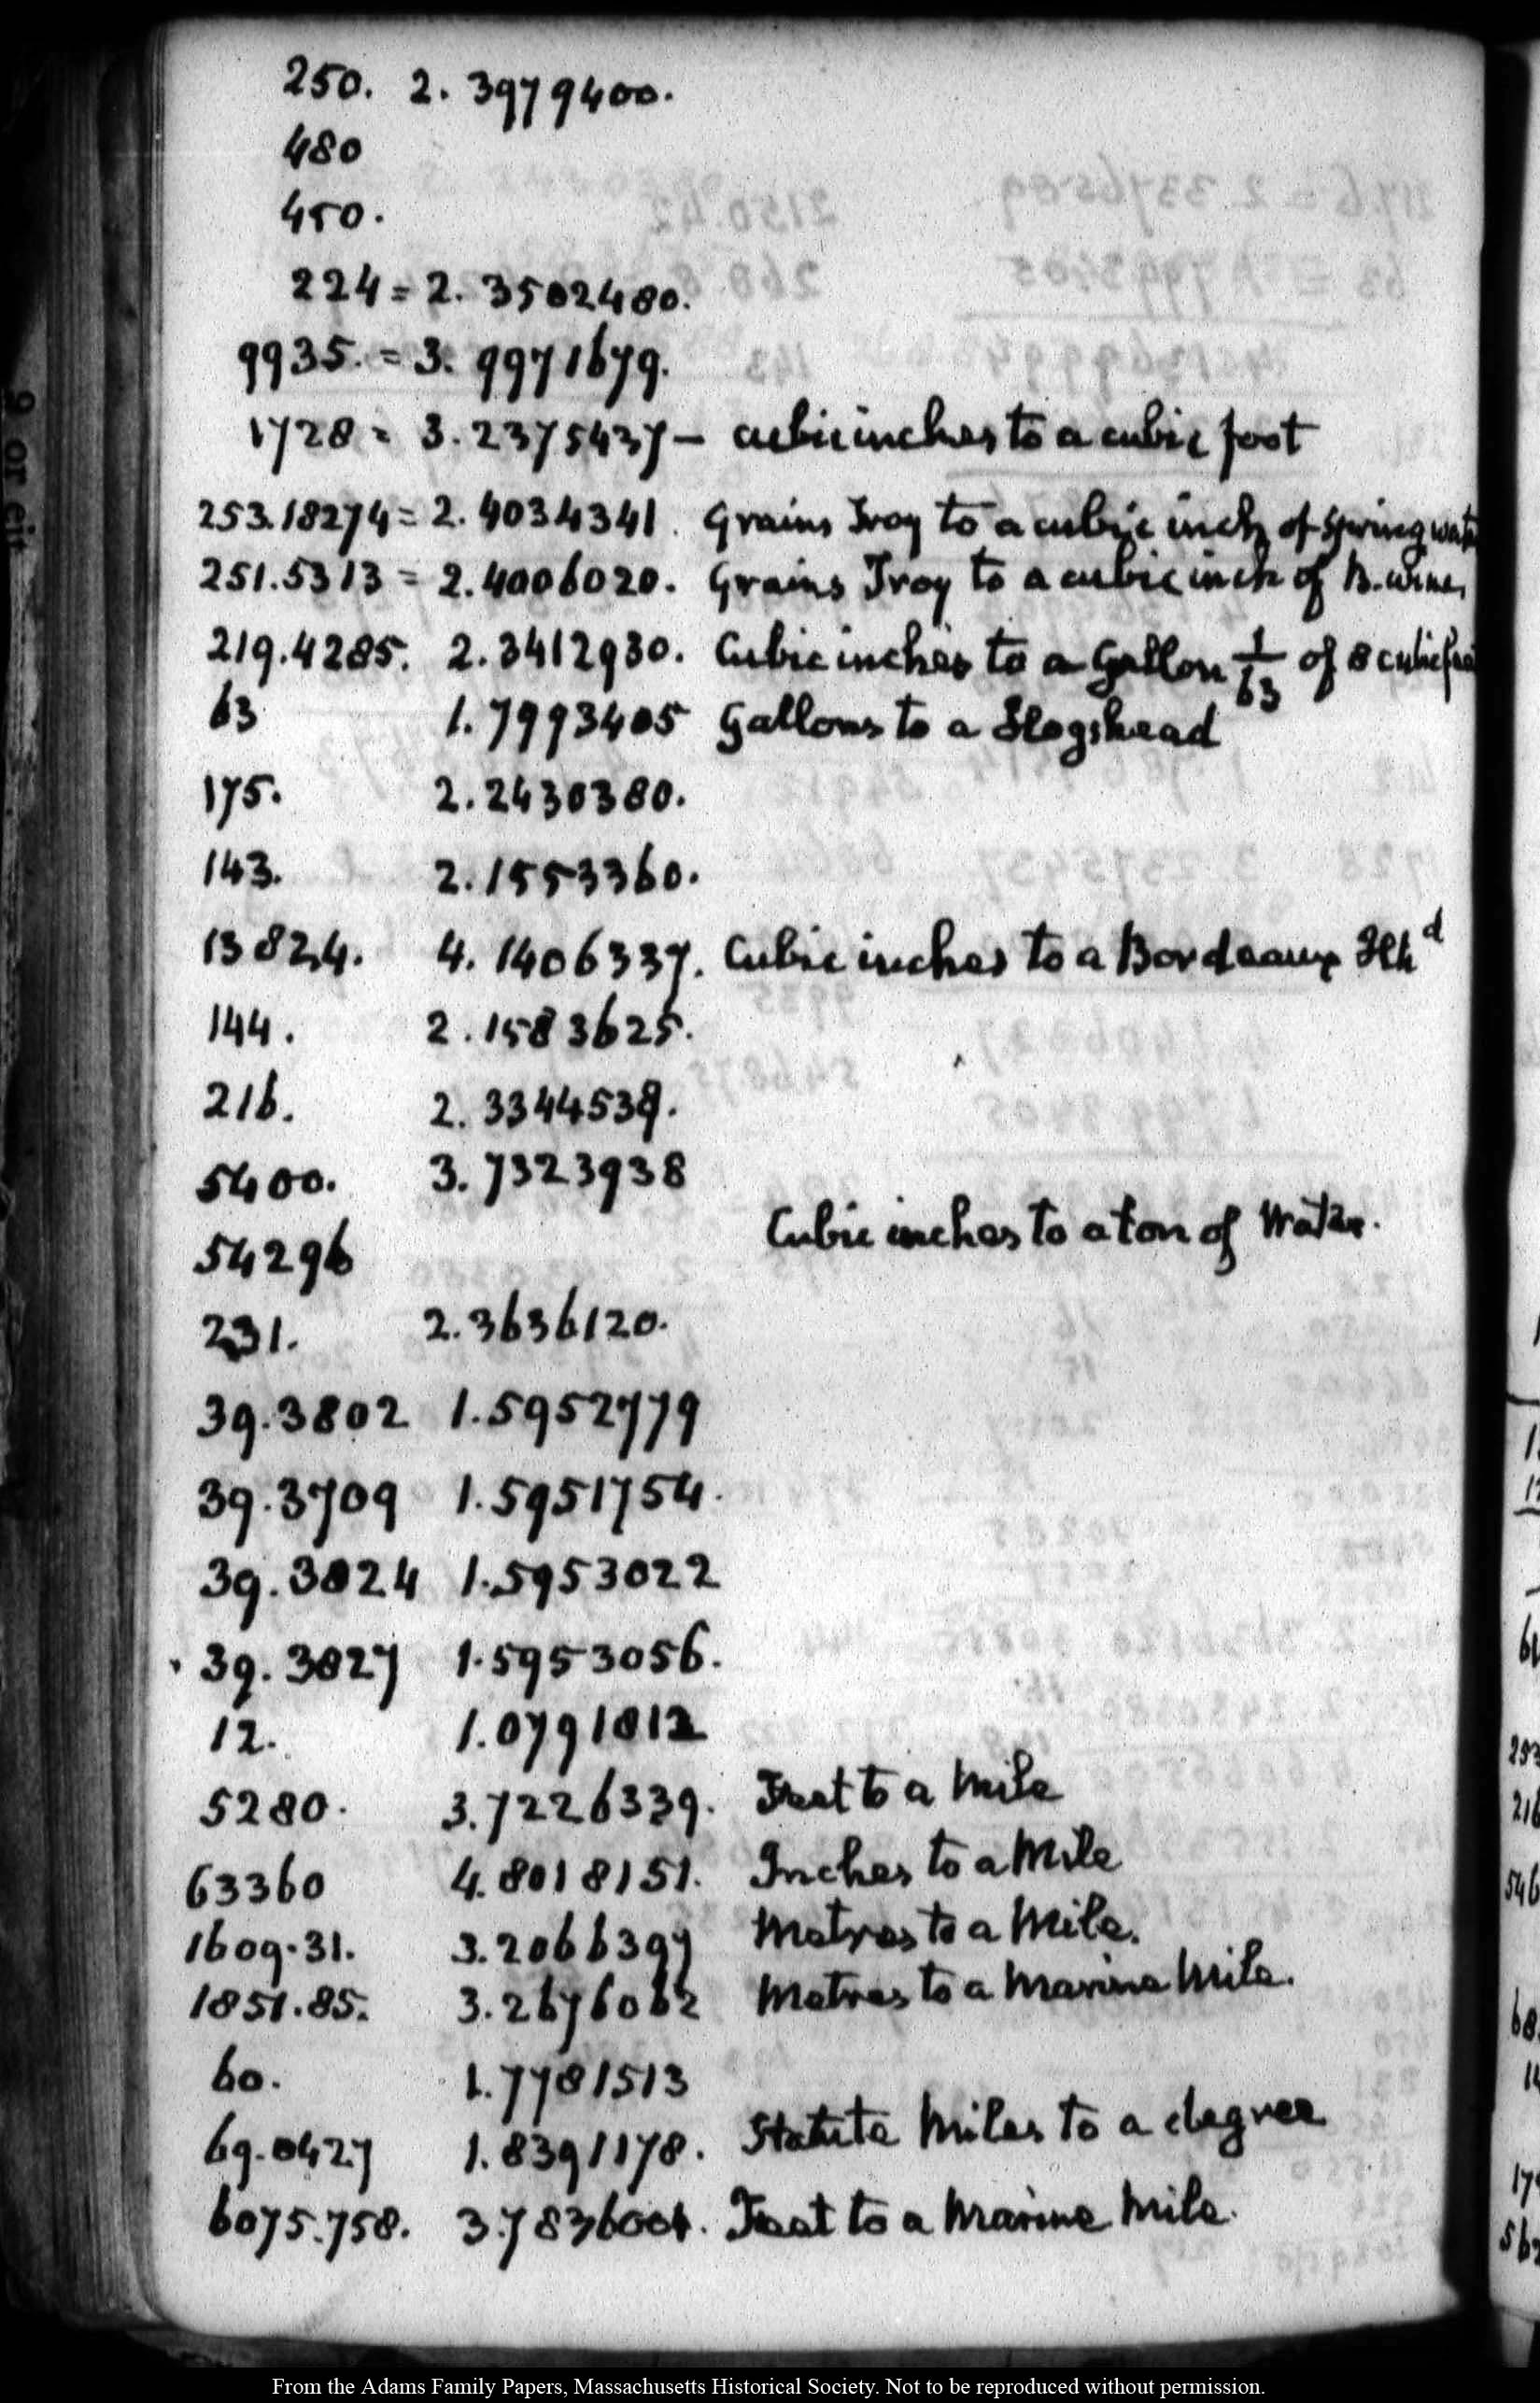 250. 2. 3979400.
480
450.
224 = 2. 3502480.
9935. = 3. 9971679.
1728 = 3. 2375437 - cubic inches to a cubic foot
253.18274 = 2. 4034341. Grains Troy to a cubic inch of Spring wat
251.5313 = 2.4006020. Grains Troy to a cubic inch of B. wine,
219.4285. 2.3412930. Cubic inches to a Gallon 1/63 of 8 cubic fee
63 1.7993405 Gallons to a Hogshead
175. 2.2430380.
143. 2.1553360.
13824. 4. 1406337. Cubic inches to a Bordeaux Hhd
144. 2.1583625.
216. 2. 3344539.
5400. 3. 7323938
54296 Cubic inches to a ton of Water.
231. 2.3636120.
39.3802 1.5952779
39.3709 1.5951754.
39.3824 1.5953022
39.3827 1.5953056.
12. 1.0791812
5280. 3.7226339. Feet to a Mile
63360 4.8018151. Inches to a Mile
1609.31. 3.2066397 Metres to a Mile.
1851.85. 3.2676062 Metres to a Marine Mile.
60. 1.7781513
69.0427 1.8391178. Statute Miles to a degree
6075.758. Feet to a Marine Mile.
9 or eit
From the Adams Family Papers, Massachusetts Historical Society. Not to be reproduced without permission.